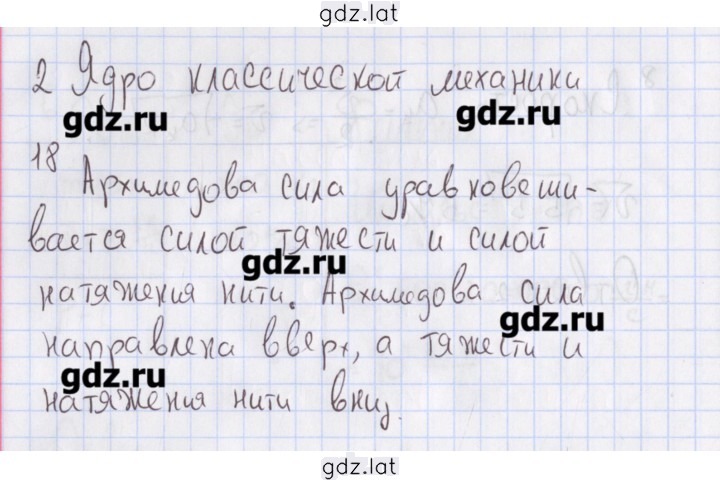 gdz.lat
2 Ядро классической механики
gdz.ru
gdz.ru
18
Архимедова сила уравновеши-
вается силой тяжести и силой
gdz.ru
натяжения нити. Архимедова сила
gdz.ru
направлена вверх, а тяжести и
gdz.ru
натяжения нити вниз.
gdz.lat